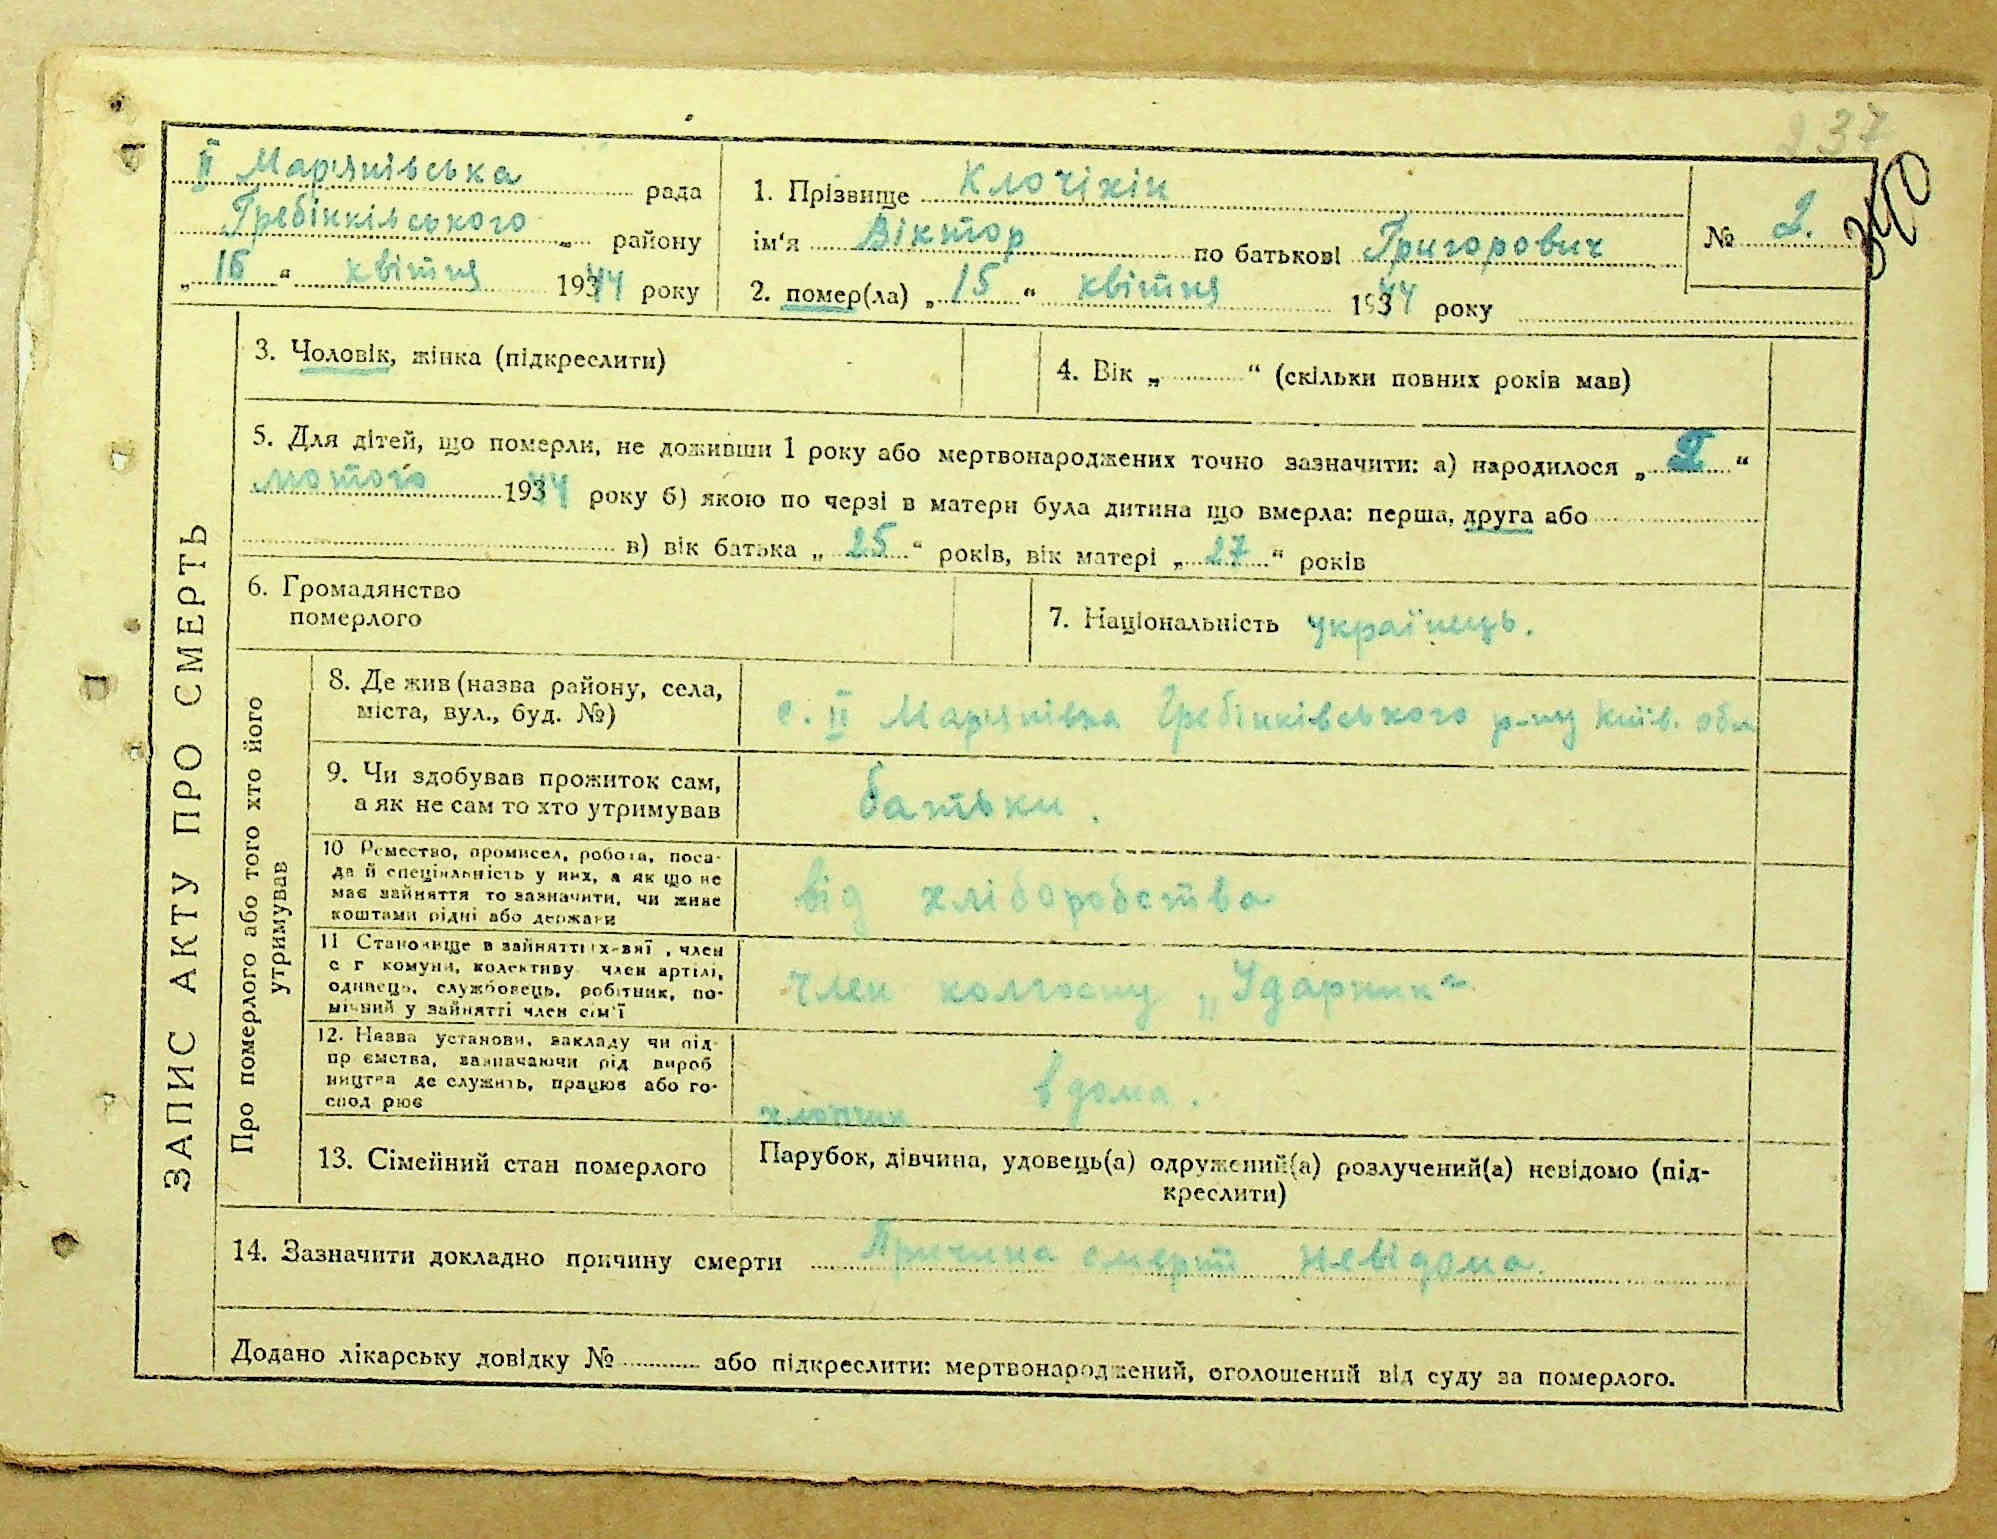 237
340
ІІ Мар'янівська рада
Гребінківського району
„16“ квітня 1944 року
1. Прізвище Клочіхін
ім'я Віктор по батькові Григорович
2. помер(ла) „15“ квітня 1944 року
№ 2.
ЗАПИС АКТУ ПРО СМЕРТЬ
3. Чоловік, жінка (підкреслити)
4. Вік „ “ (скільки повних років мав)
5. Для дітей, що померли, не доживши 1 року або мертвонароджених точно зазначити: а) народилося „ “
лютого 1944 року б) якою по черзі в матери була дитина що вмерла: перша, друга або
в) вік батька „25“ років, вік матері „27“ років
6. Громадянство
померлого
7. Національність українець.
Про померлого або того хто його
утримував
8. Де жив (назва району, села,
міста, вул., буд. №)
с. ІІ Мар'янівка Гребінківського р-ну Київ. обл
9. Чи здобував прожиток сам,
а як не сам то хто утримував
батьки.
10 Ремество, промисел, робота, поса-
да й спеціяльність у них, а як що не
має зайняття то зазначити, чи живе
коштами рідні або держави
від хліборобства
11 Становище в зайнятті , член
с г комуни, колективу член артілі,
одинець, службовець, робітник, по-
мічний у зайнятті член сім'ї
член колгоспу „Ударник“
12. Назва установи, закладу чи під-
пр ємства, зазначаючи рід вироб
ництва де служить, працює або го-
спод рює
вдома.
хлопчик
13. Сімейний стан померлого
Парубок, дівчина, удовець(а) одружений(а) розлучений(а) невідомо (під-
креслити)
14. Зазначити докладно причину смерти Причина смерті невідома.
Додано лікарську довідку № або підкреслити: мертвонароджений, оголошений від суду за померлого.